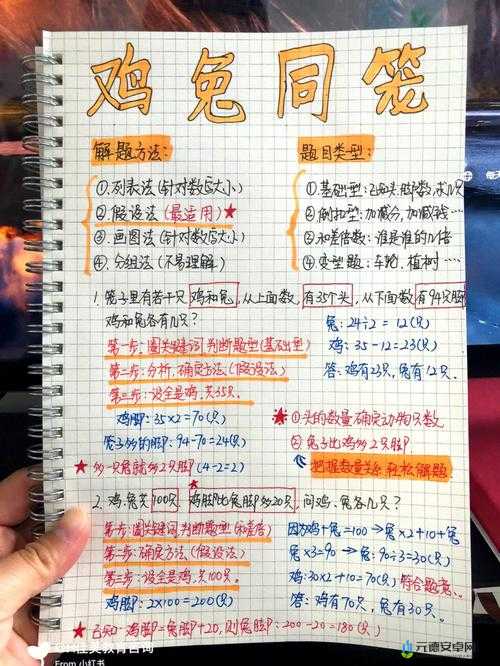 鸡兔同笼
解题方法:
①.列表法(针对数字大小)
②.假设法(最适用)★
③.画图法(针对数字大小)
④.分组法(不易理解)
题目类型:
①.基础型:已知头.脚数,求只
②.倒扣型:加减分,加减钱…
③.和差倍数:谁是谁的几倍
④.变型题:车轮.植树…
1.笼子里有若干只鸡和兔,从上面数,有35个头,从下面数有94只脚
鸡和兔各有几只?
第一步:圈关键词,判断题型(基础型)
第二步:分析,确定方法,(假设法)
第三步:设全是鸡,共35只.
鸡脚:35×2=70(只)
94-70=24(只)
★多一只兔就多2只脚(4-2=2)
兔:24÷2=12(只)
鸡:35-12=23(只)
答:鸡有23只,兔有12只.
★①头的数量确定动物只数
②兔子比鸡多2只脚.
把握数量关系 轻松解题.
2.鸡.兔共100只 鸡脚比兔脚多20只,问鸡.兔各几只?
第一步:圈关键词,判断题型(和差倍)
第二步:确定方法,(假设法)
第三步:设全是鸡,共100只.
鸡脚:2×100=200(只)
★已知:鸡脚=兔脚+20,则兔脚:200-20=180(只)
因为鸡+兔=100→兔×2+10+兔
兔×3=90→兔:90÷3=30(只)
鸡:30×2+10=70(只)符合题意.
答:鸡有70只,兔有30只.
小红书
元德安卓网